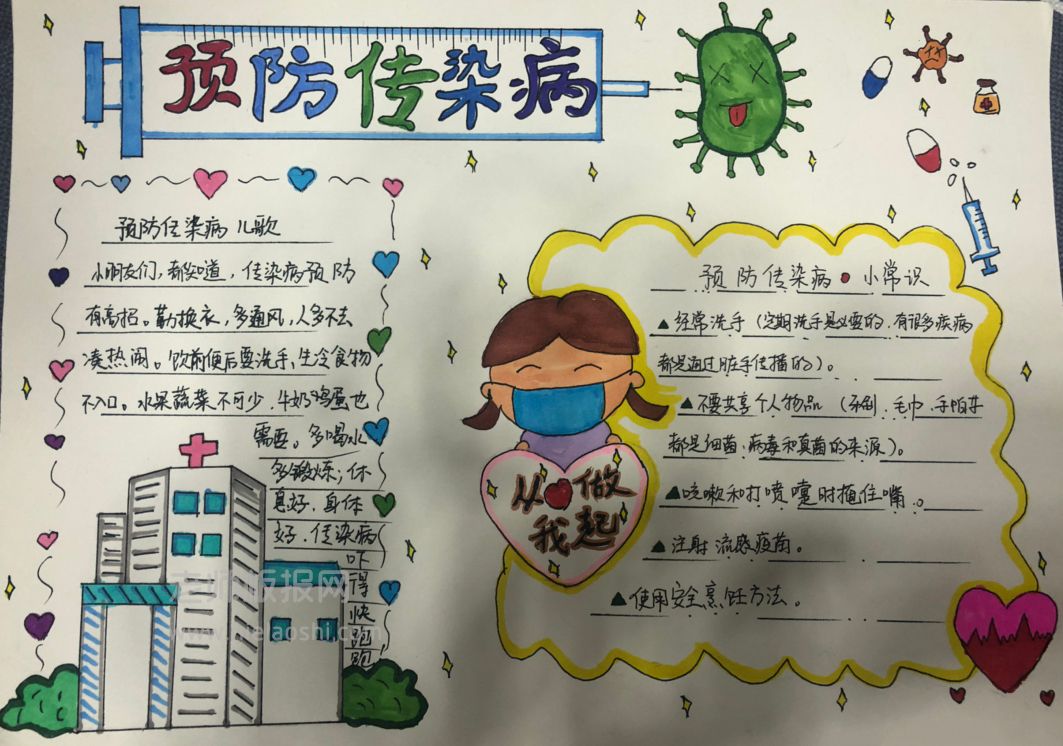 预防传染病
预防传染病儿歌
小朋友们，都知道，传染病预防
有高招。勤换衣，多通风，人多不去
凑热闹。饮前便后要洗手，生冷食物
不入口。水果蔬菜不可少，牛奶鸡蛋也
需要。多喝水
多锻炼；休
息好，身体
好，传染病
吓
得
快
跑
跑
预防传染病●小常识
▲经常洗手（定期洗手是必要的，有很多疾病
都是通过脏手传播的）。
▲不要共享个人物品（牙刷、毛巾、手帕等
都是细菌、病毒和真菌的来源）。
▲咳嗽和打喷嚏时掩住嘴。
▲注射流感疫苗。
▲使用安全烹饪方法。
从做
我起
老师板报网